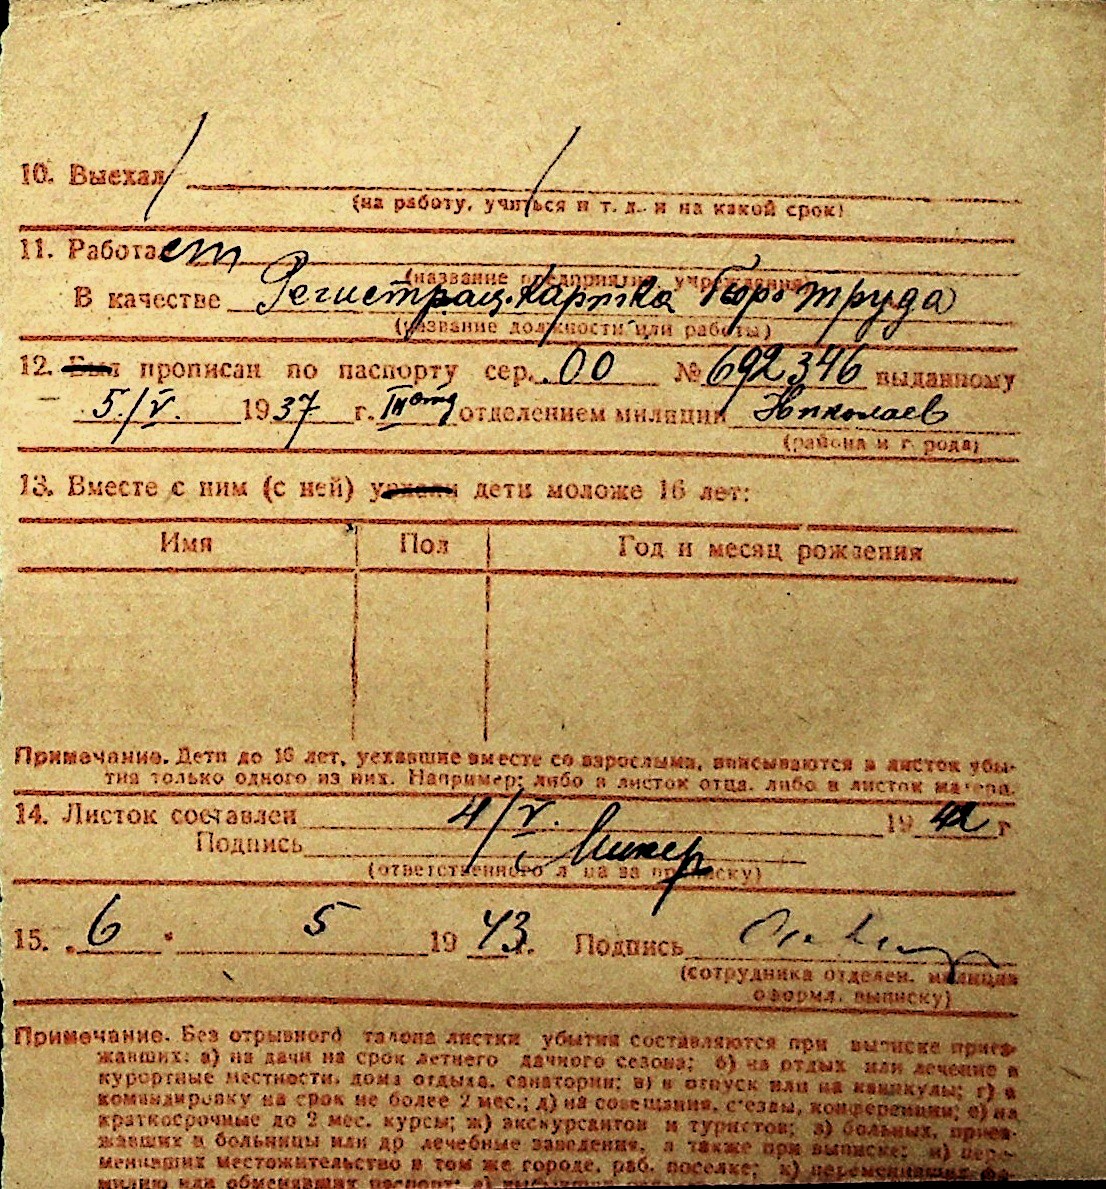 10. Выехал
(на работу, учиться и т. д. и на какой срок)
11. Работает
(название предприятия, учреждения)
В качестве Регистрац. Картка Бюро труда
(название должности или работы)
12. Был прописан по паспорту сер. 00 № 692346 выданному
5/V. 1937 г. III отд отделением милиции Николаев
(района и города)
13. Вместе с ним (с ней) уехали дети моложе 16 лет:
Имя Пол Год и месяц рождения
Примечание. Дети до 16 лет, уехавшие вместе со взрослыми, вписываются в листок убы-
тия только одного из них. Например: либо в листок отца, либо в листок матери.
14. Листок составлен 4/V. 1942 г
Подпись
(ответственного лица за прописку)
15. 6 5 1943 г. Подпись
(сотрудника отделен. милиции
оформл. выписку)
Примечание. Без отрывного талона листки убытия составляются при выписке приез-
жавших: а) на дачи на срок летнего дачного сезона; б) на отдых или лечение в
курортные местности, дома отдыха, санатории; в) в отпуск или на каникулы; г) в
командировку на срок не более 2 мес.; д) на совещания, съезды, конференции; е) на
краткосрочные до 2 мес. курсы; ж) экскурсантов и туристов; з) больных, приез-
жавших в больницы или др лечебные заведения, а также при выписке; и) пере-
менивших местожительство в том же городе, раб. поселке; к) переменивших фа-
милию или обменявших паспорт;